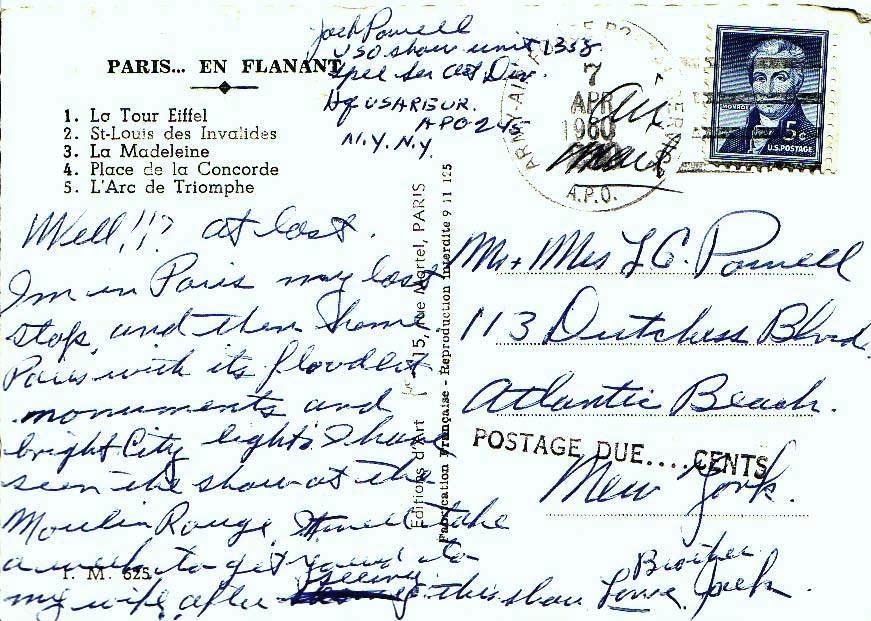 Jack Powell
USO show unit 1358
Spec Ser Det Div.
Hq USAREUR.
APO 245
N.Y. N.Y.
PARIS... EN FLANANT
1. La Tour Eiffel
2. St-Louis des Invalides
3. La Madeleine
4. Place de la Concorde
5. L'Arc de Triomphe
7
APR
1960
A.P.O.
Air
Mail
MONROE
5c
U.S. POSTAGE
Well!!? at last.
Im in Paris my last
stop, and then home
Paris with its floodlit
monuments and
bright City lights I have
seen the show at the
Moulin Rouge, take
a week to get round to
my wife after seeing this show Love Brother Jack.
I. M. 625
Editions d'Art 15, rue Martel, PARIS
Fabrication Française - Reproduction Interdite 9 11 125
Mr + Mrs L C. Powell
113 Dutchess Blvd.
Atlantic Beach.
POSTAGE DUE....CENTS
New York.